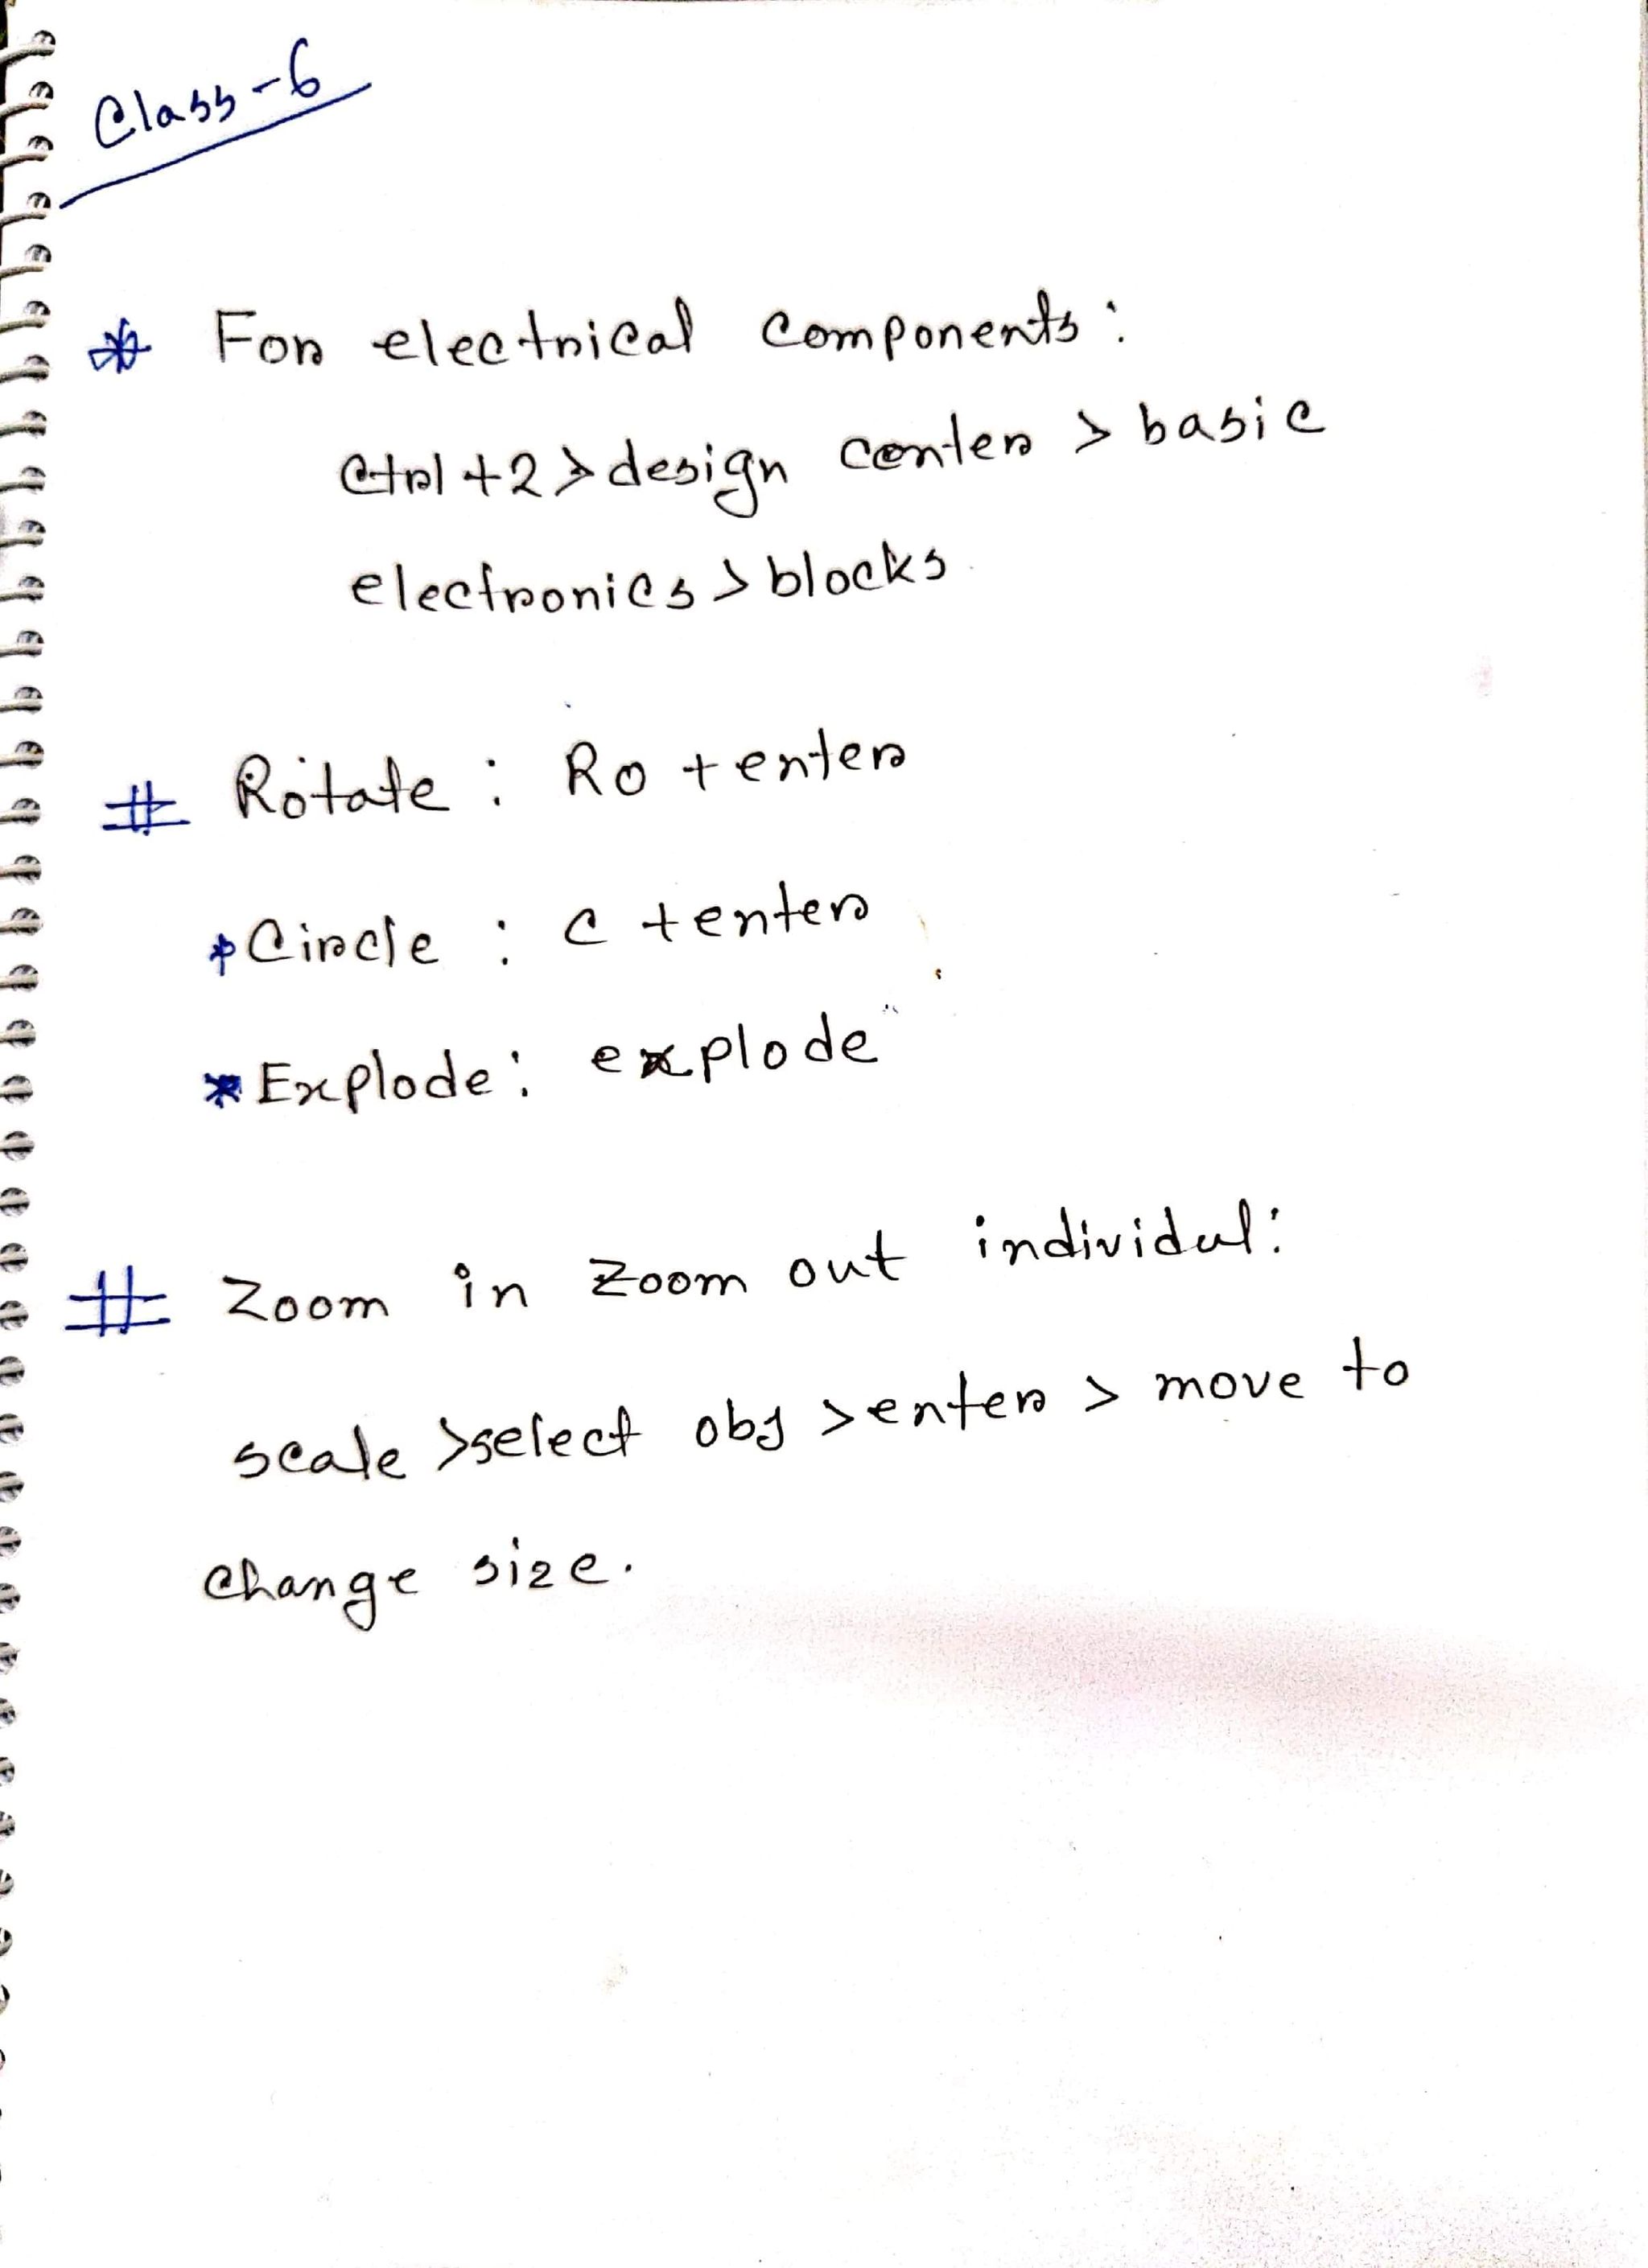 Class-6
* For electrical components:
Ctrl+2 > design center > basic
electronics > blocks
# Rotate : Ro + enter
* Circle : C + enter
* Explode : explode
# Zoom in Zoom out individul:
scale > select obj > enter > move to
change size.